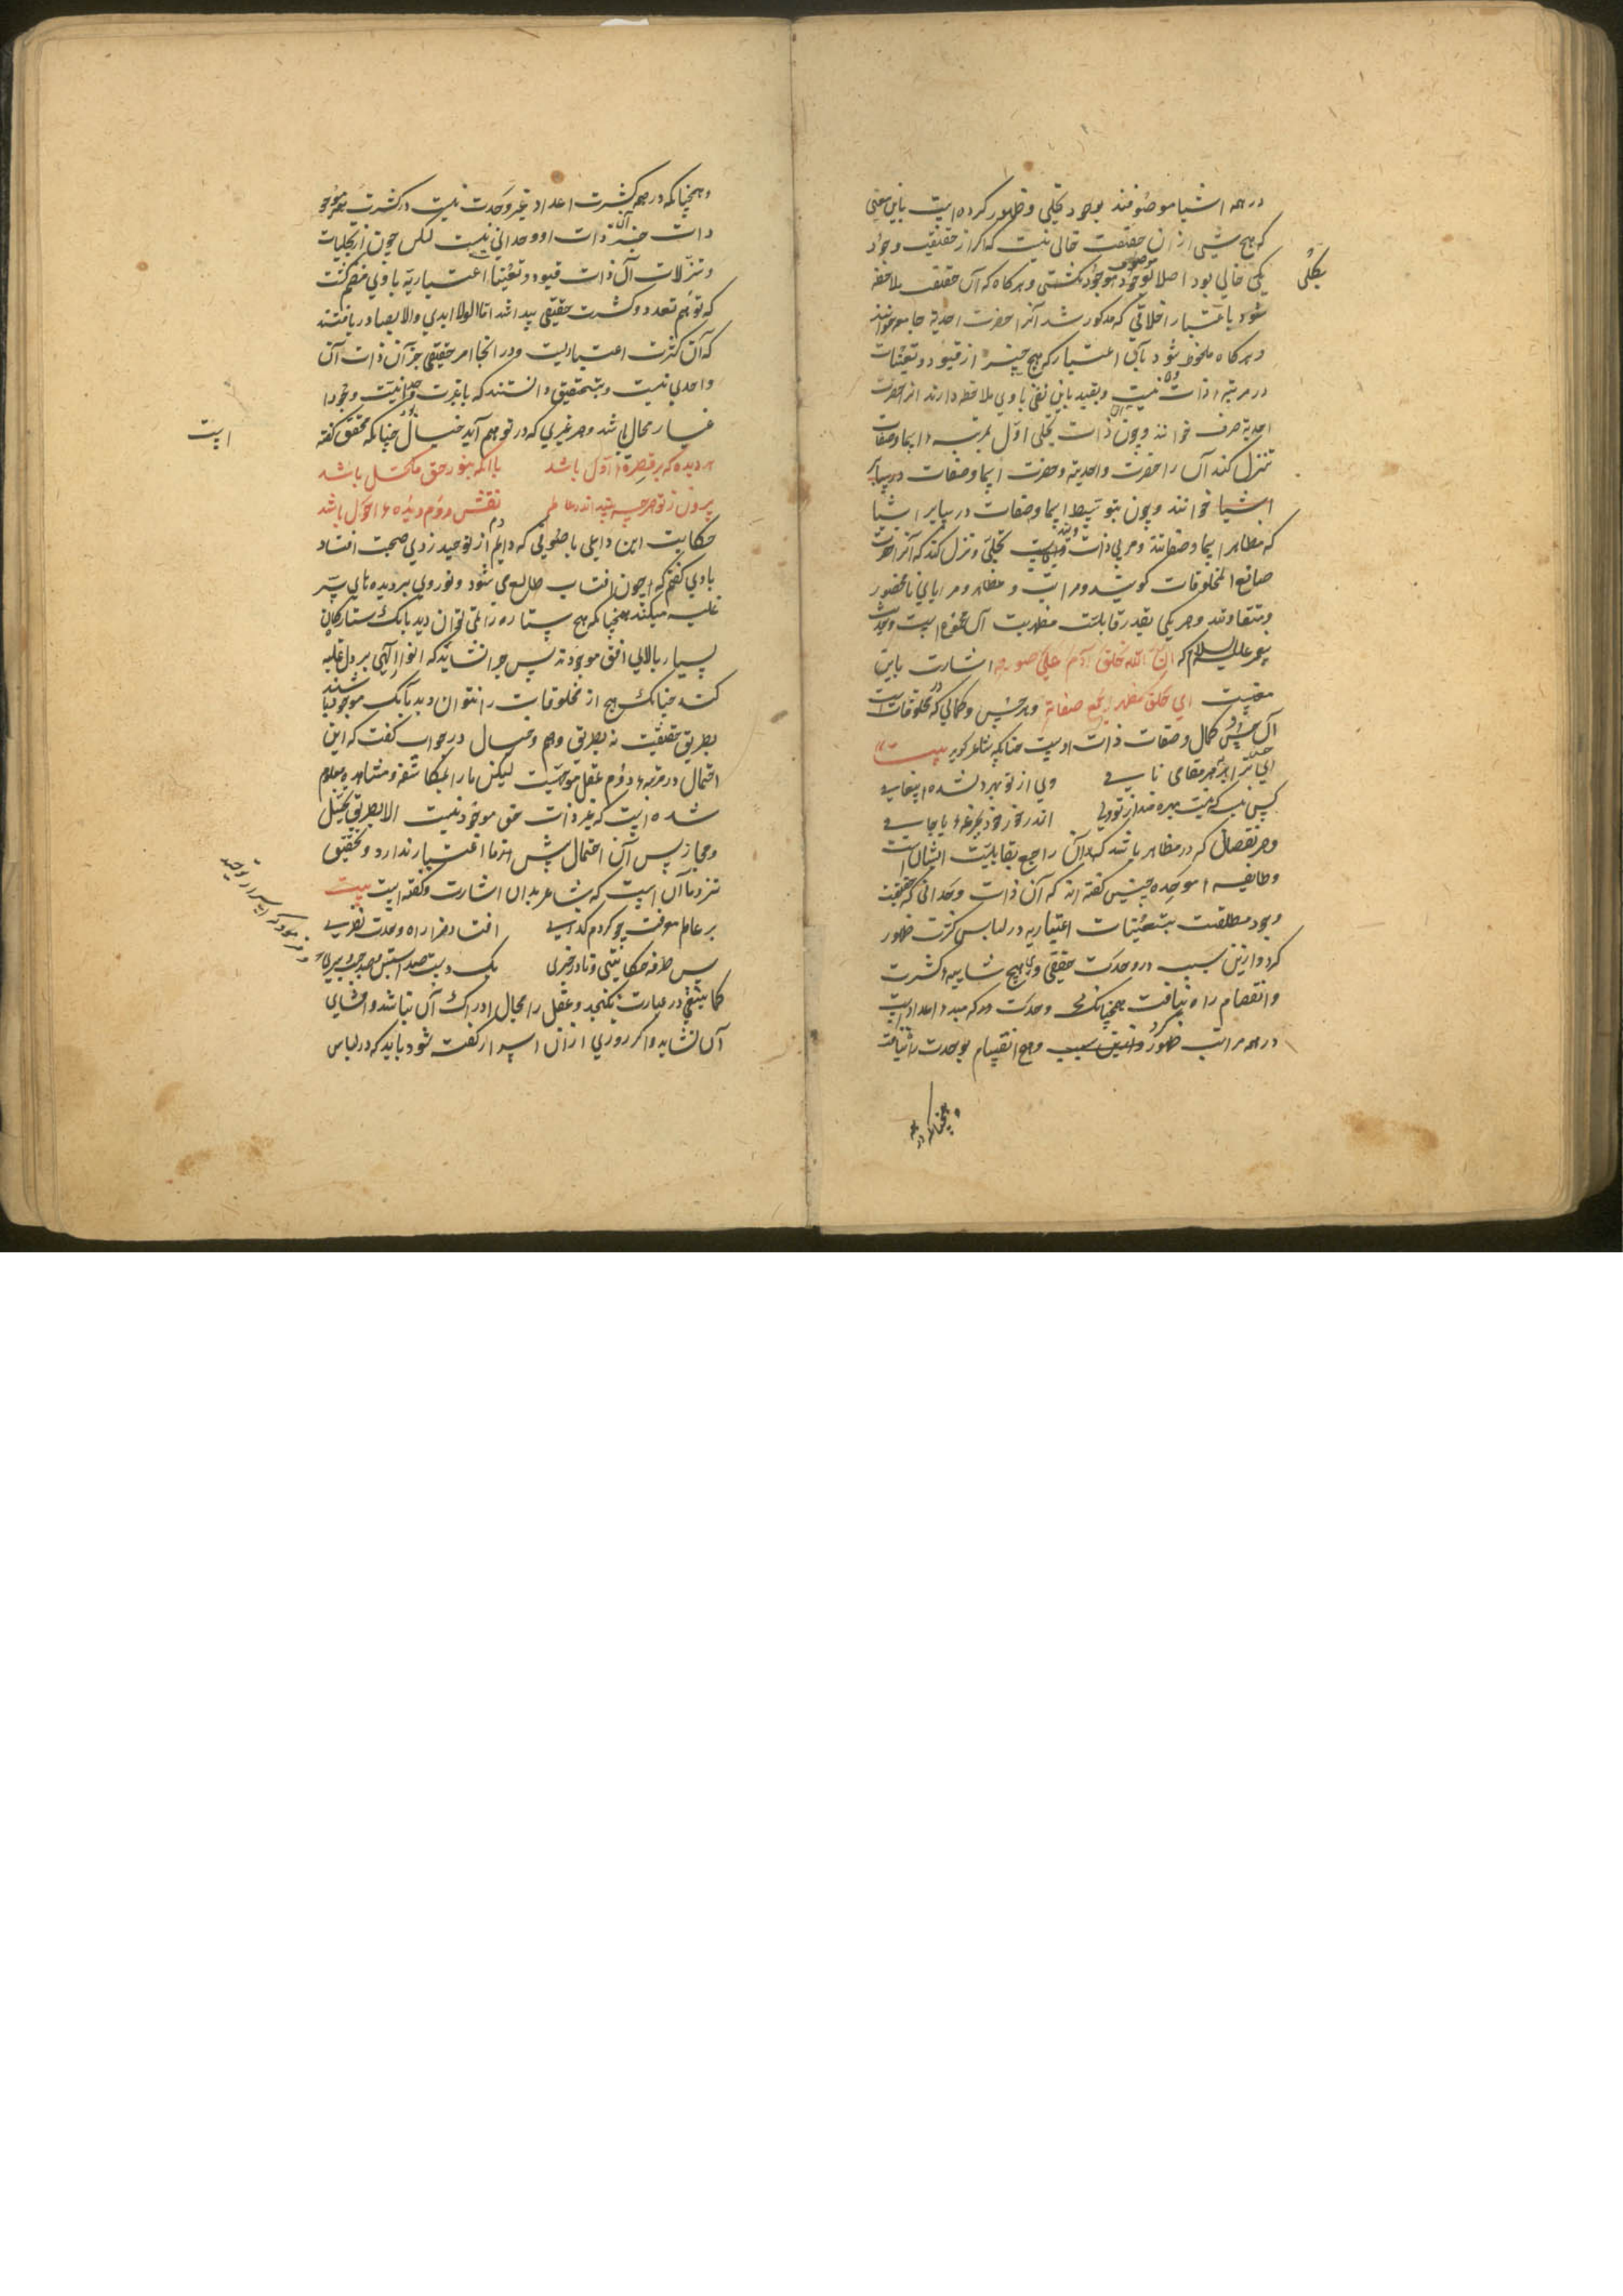 در همه اشیا موصوفند بوجود تجلی و ظهور کرده است باین معنی
که هیچ شیی از ان حقیقت خالی نیست که اکر از حقیقت وجود
بکلی خالی بود اصلا بوجود موصوف نکشتی و هرکاه که آن حقیقت ملاحظه
بکلی
شود باعتبار اطلاقی که مذکور شد آنرا حضرت احدیة جامعه خوانند
و هرکاه ملحوظ شود بآنی اعتبار که هیچ چیز از قیود و تعینات
در مرتبهٔ ذات نیست و بقید باین نفی باوی ملاحظه دارند انرا حضرت
احدیة صرف خوانند و چون آن ذات تجلی اول بمرتبه اسما و صفات
تنزل کند آن را حضرت واحدیة و حضرت اسما و صفات در سایر
اشیا خوانند و چون بتوسیط اسما و صفات در سایر اشیا
که مظاهر اسما و صفاتند و مربی ذات تجلی و تنزل کند که آنرا حضرت
صانع المخلوقات کویند و مراتب و مظاهر و مرایای نامحصور
و متفاوتند و هر یکی بقدر قابلیت مظهریت آن است و حدیث
علیه السلام که ان الله خلق آدم علی صورته اشارت باین
معنیست ای خلق مظهر لجمیع صفاته و هر حسن و کمالی که در مخلوقات است
آن حسن و کمال وصفات ذات اوست چنانچه شاعر کوید بیت
ای جلوه ترا بهر مقامی نامی وی از تو بهره نشده ایتامی
کس نیست که نیست بهره مند از تو ولی اندر خور خود بجرعهٔ یا جامی
و هر نقصان که در مظاهر باشد که آن راجع بقابلیت ایشان است
و طایفه موحده چنین کفته اند که آن ذات وحدانی که حقیقت
وجود مطلقست بتعینات اعتباریه در لباس کثرت ظهور
کرد و ازین سبب در وحدت حقیقی وی هیچ شایبه کثرت
و انقسام راه نیافت همچنانکه وحدت که مبدء اعداد است
در همه مراتب ظهور کرد و ازین سبب و هیچ انقسام بوحدت راه نیافت
و همچنانکه در همه
و همچنانکه در همه کثرت اعداد غیر وحدت نیست در کثرت موجود
ذات جز آن ذات او وحدانی نیست لکن چون از تجلیات
و تنزلات آن ذات قیود و تعینات اعتباریه باوی منضم کشت
که توهم تعدد و کثرت حقیقی پیدا شد اما اولو الایدی والابصار دریافتند
که آن کثرت اعتباریست و در انجا امر حقیقی جز آن ذات آن
واحدی نیست و بتحقیق دانستند که باعتبارت وحدانیت وجود
اغیار محال باشد و هر غیری که در توهم آید خیال بود چنانکه محقق کفته
است
هر دیده که بر فطرة اول باشد یا انکه بنور حق مکحل باشد
بیرون ز تو هر چه بیند اندر عالم نقش دوم دیدهٔ احول باشد
حکایت این داعی با صوفی که دایم از توحید دم زدی صحبت افتاد
باوی کفتم که چون افتاب طالع می شود و نور وی بر دیده های بشر
غلبه میکند همچنانکه هیچ ستاره را نمی توان دید بانک ستارکان
بسیار بالای افق موجودند پس چرا نشاید که انوار الهی بر دل غلبه
کند چنانک هیچ از مخلوقات را نتوان دید بآنک موجود باشند
بطریق حقیقت نه بطریق وهم و خیال در جواب کفت که این
احتمال در مرتبهٔ دوم عقل موجهست لیکن ما را بمکاشفه و مشاهده معلوم
شده است که غیر ذات حق موجود نیست الا بطریق تخیل
و مجاز پس آن احتمال پیش ما اعتبار ندارد و تحقیق
نزد ما آن است که شاعر بدان اشارت و کفته است بیت
بر عالم معرفت چو کردم کذری افتاد مرا راه وحدت نظری
پس طرفه حکایتی و نادر خبری یک دست صد آستین و صد جیب سری
و فرمود که اسرار توحید
کما ینبغی در عبارت نکنجد و عقل را مجال ادراک آن نباشد و افشای
آن نشاید و اکر روزی از ان اسرار کفته شود باید که در لباس